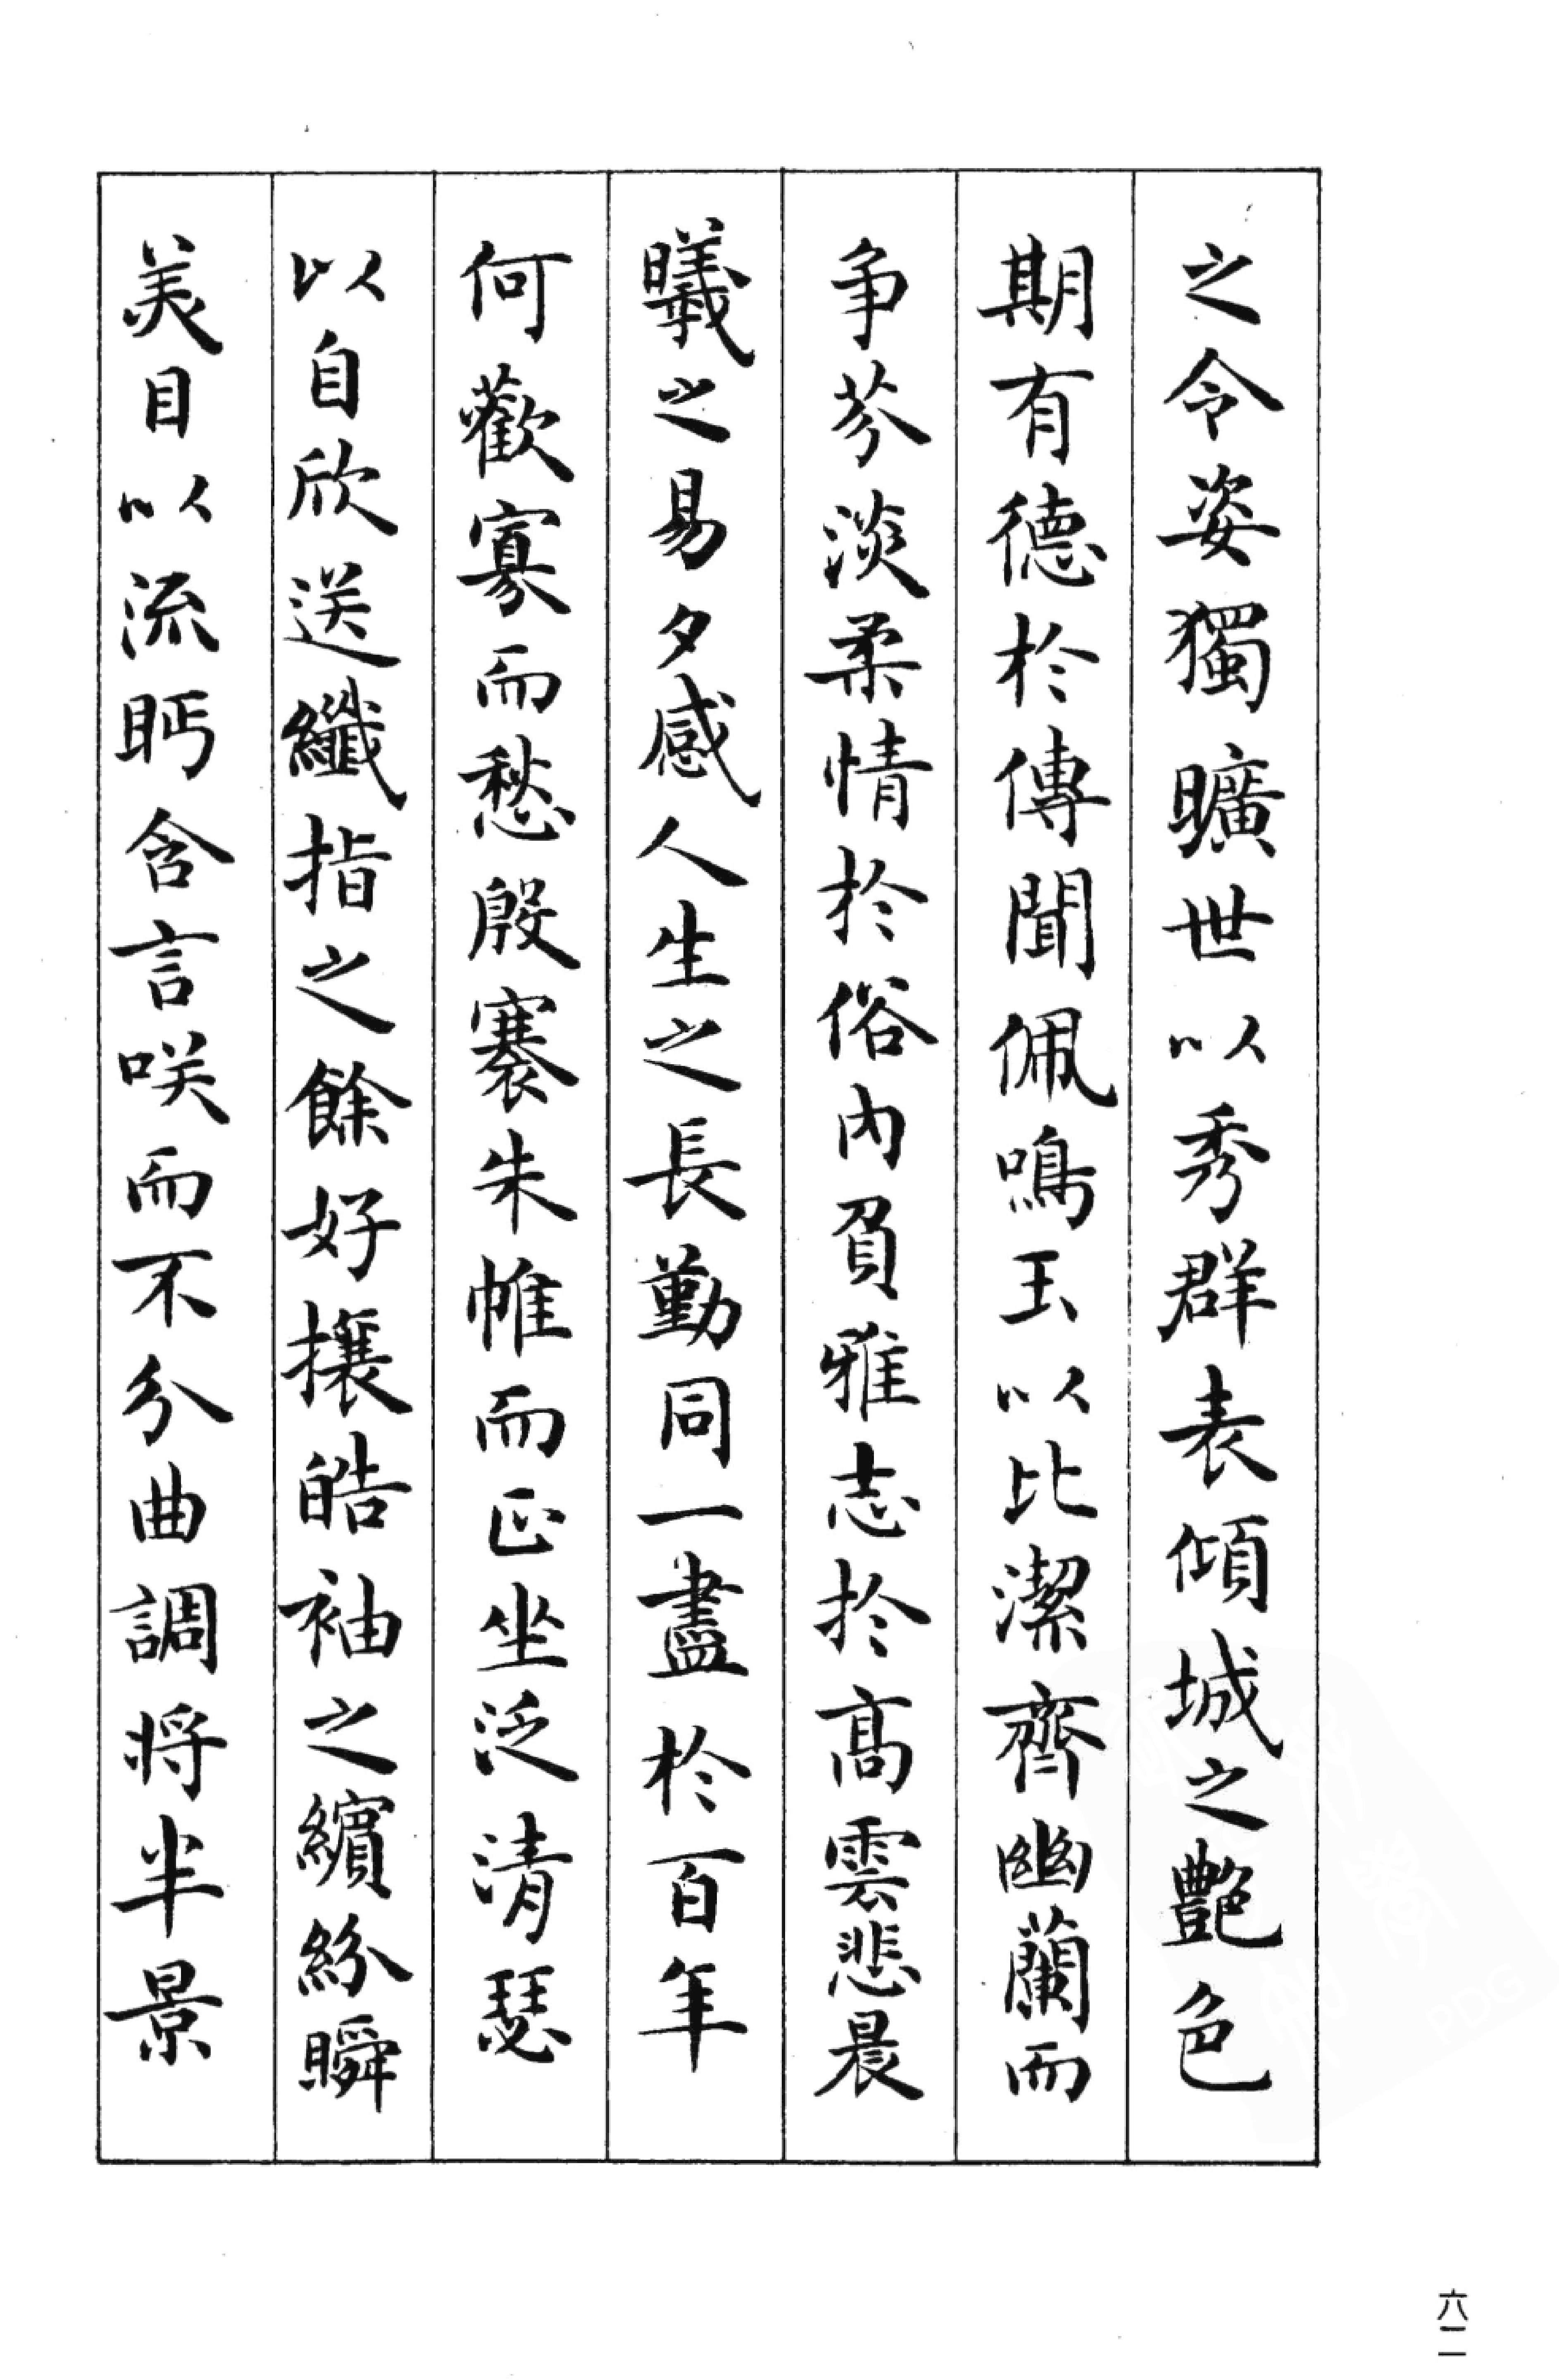 之令姿獨曠世以秀群表傾城之艷色
期有德於傳聞佩鳴玉以比潔齊幽蘭而
争芬淡柔情於俗内負雅志於高雲悲晨
曦之易夕感人生之長勤同一盡於百年
何歡寡而愁殷褰朱帷而正坐泛清瑟
以自欣送纖指之餘好攘皓袖之繽紛瞬
美目以流眄含言咲而不分曲調将半景
六二